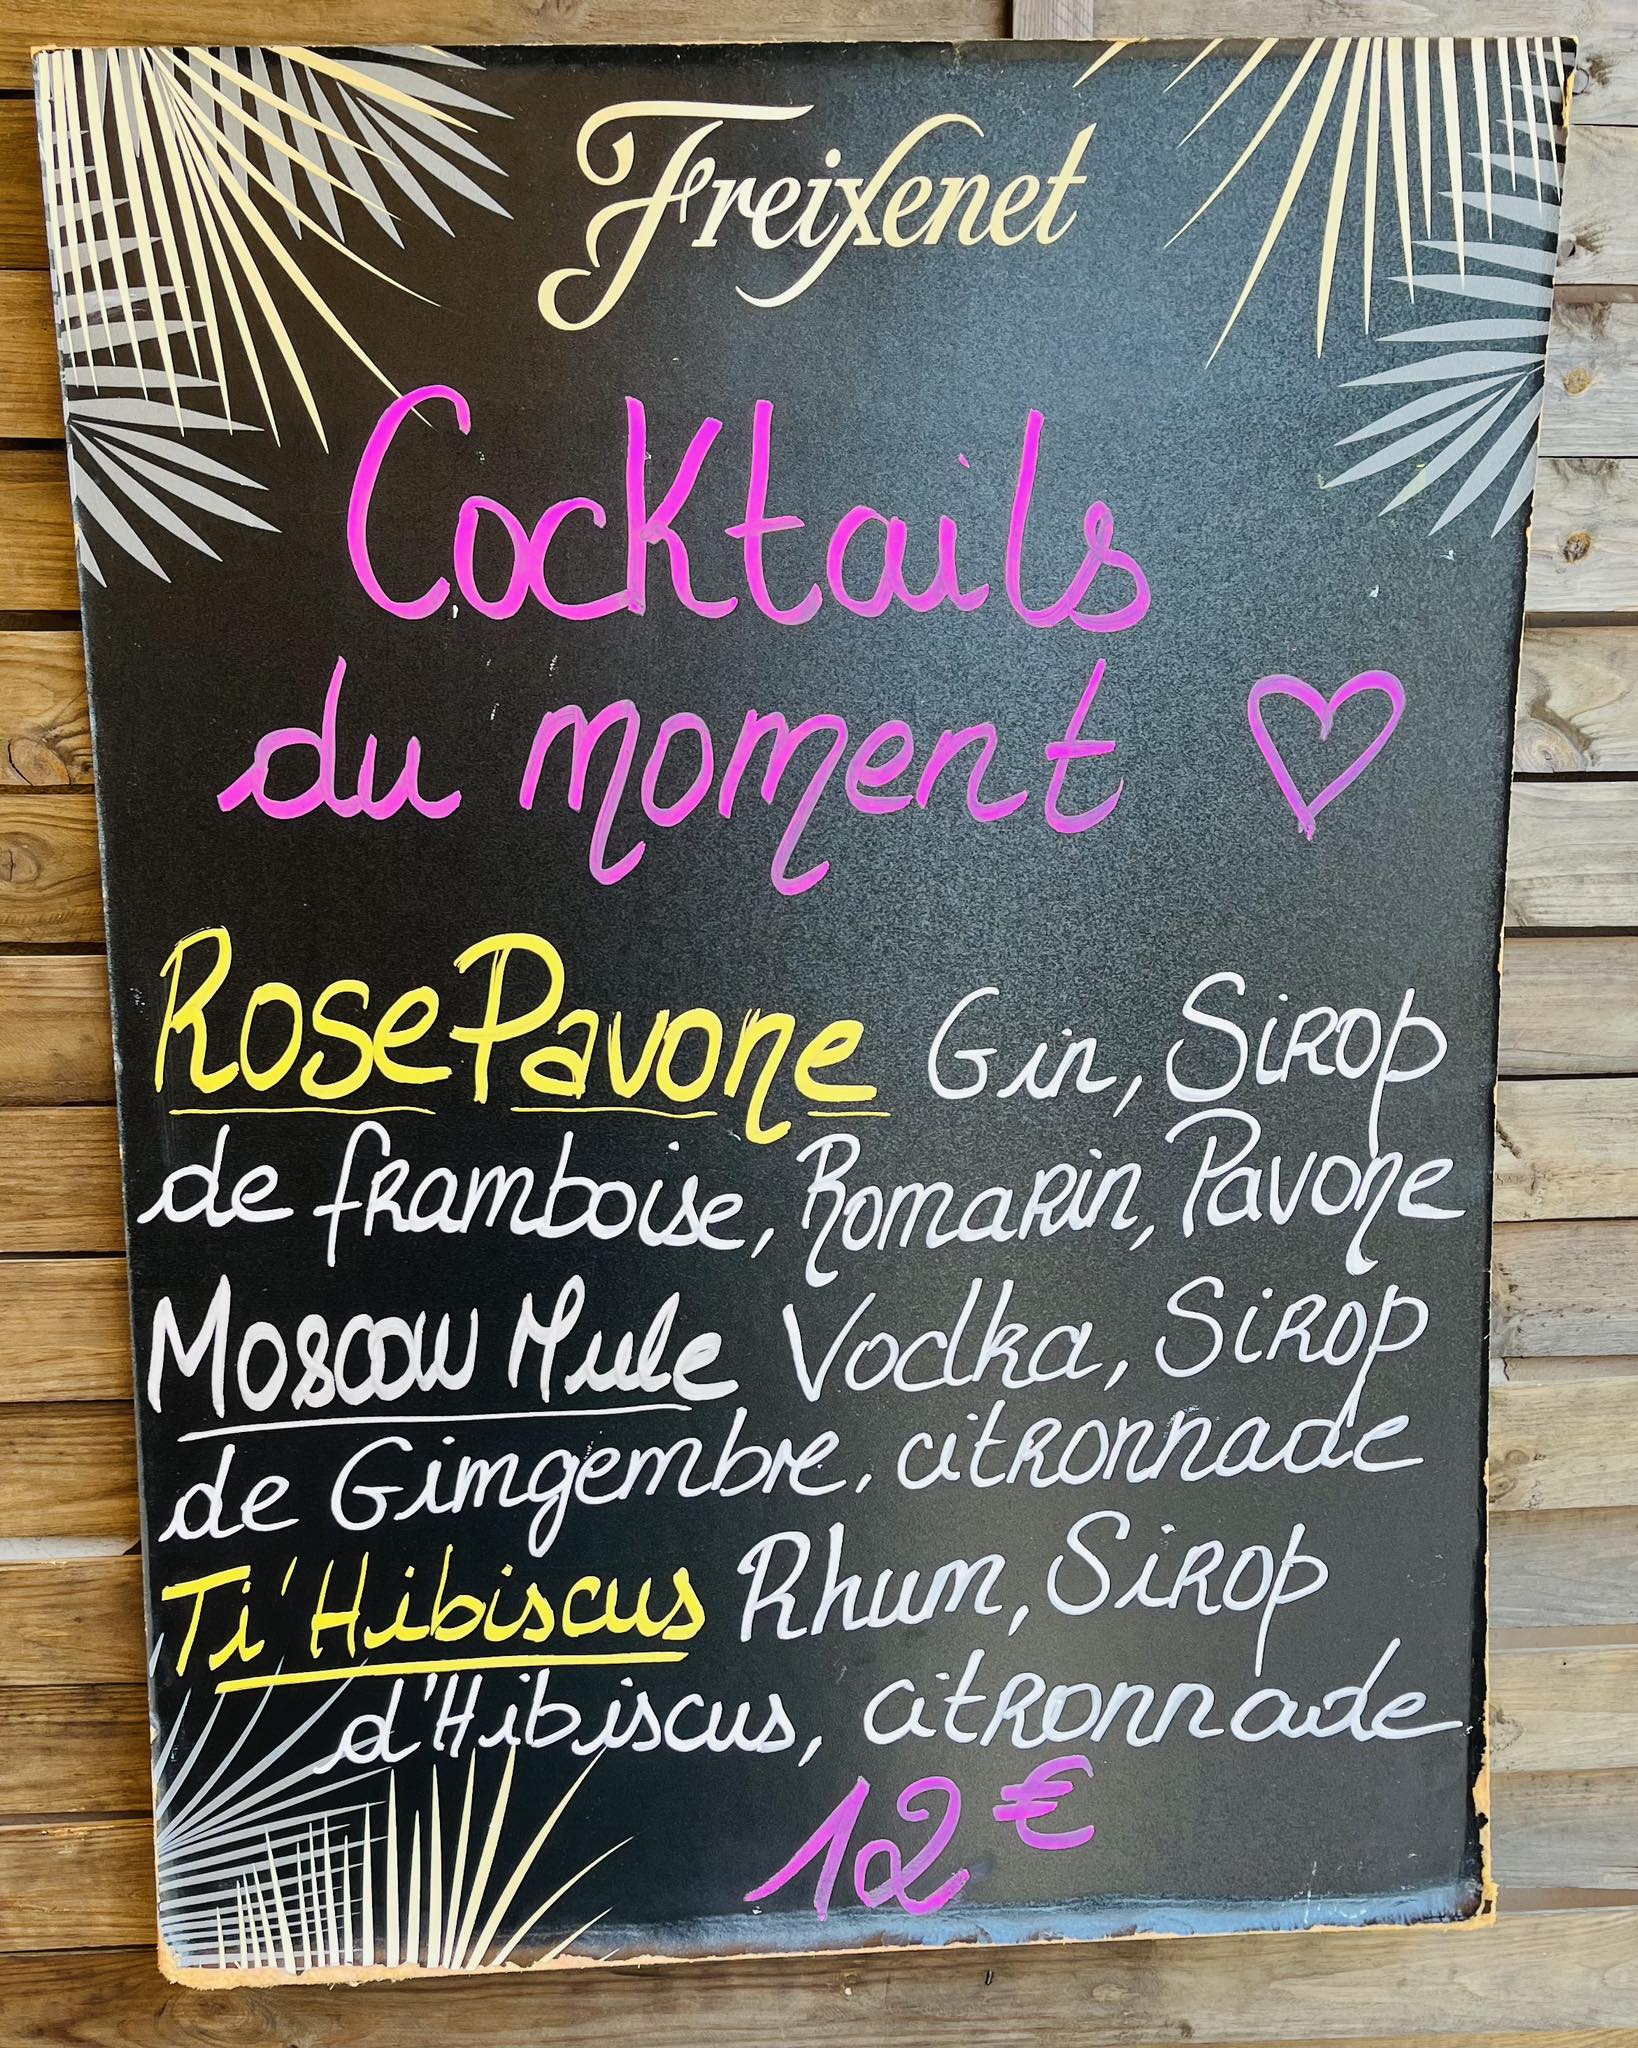 Freixenet
Cocktails
du moment
Rose Pavone Gin, Sirop
de framboise, Romarin, Pavone
Moscow Mule Vodka, Sirop
de Gimgembre, citronnade
Ti'Hibiscus Rhum, Sirop
d'Hibiscus, citronnade
12€